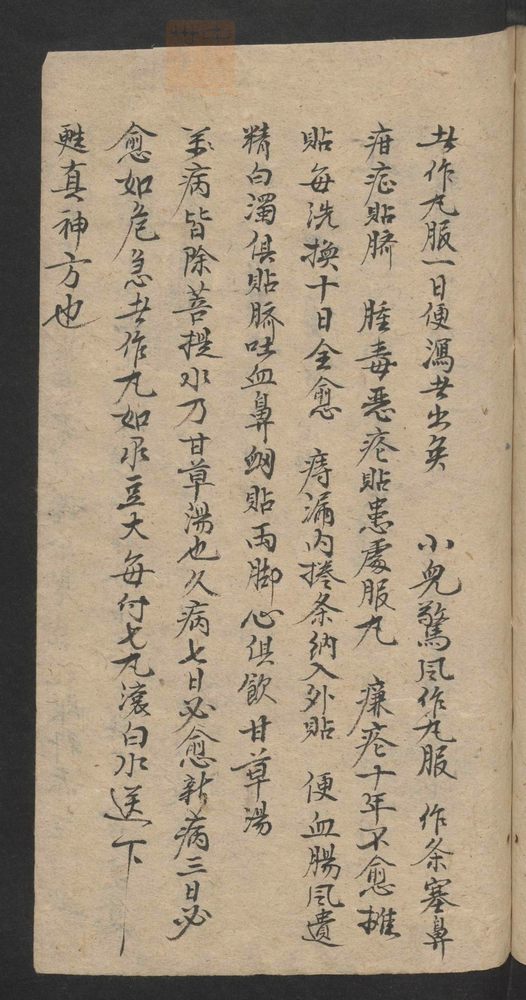 共作丸服一日便瀉共出矣 小兒驚風作丸服 作条塞鼻
疳症貼臍 腫毒恶疮貼患處服丸 臁疮十年不愈摊
貼每洗換十日全愈 痔漏内捲条納入外貼 便血腸风遺
精白濁俱貼臍吐血鼻衂貼両脚心俱飲甘草湯
萬病皆除菩提水乃甘草湯也久病七日必愈新病三日必
愈如危急共作丸如菉豆大每付七丸滚白水送下
甦真神方也